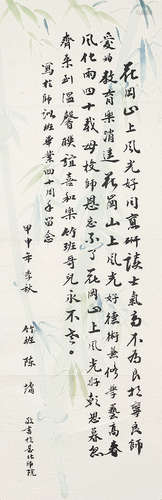 花岡山上風光好同窗研讀士氣高不為良相寧良師
愛的教育樂逍遙花崗山上風光好德術兼修學藝高春
風化雨四十載母校師恩忘不了花岡山上風光好
齊來到溫馨聯誼喜和樂竹班哥兒永不老
寫於師訓班畢業四十週年留念
甲申年季秋
竹班 陳
敬書於花蓮師院